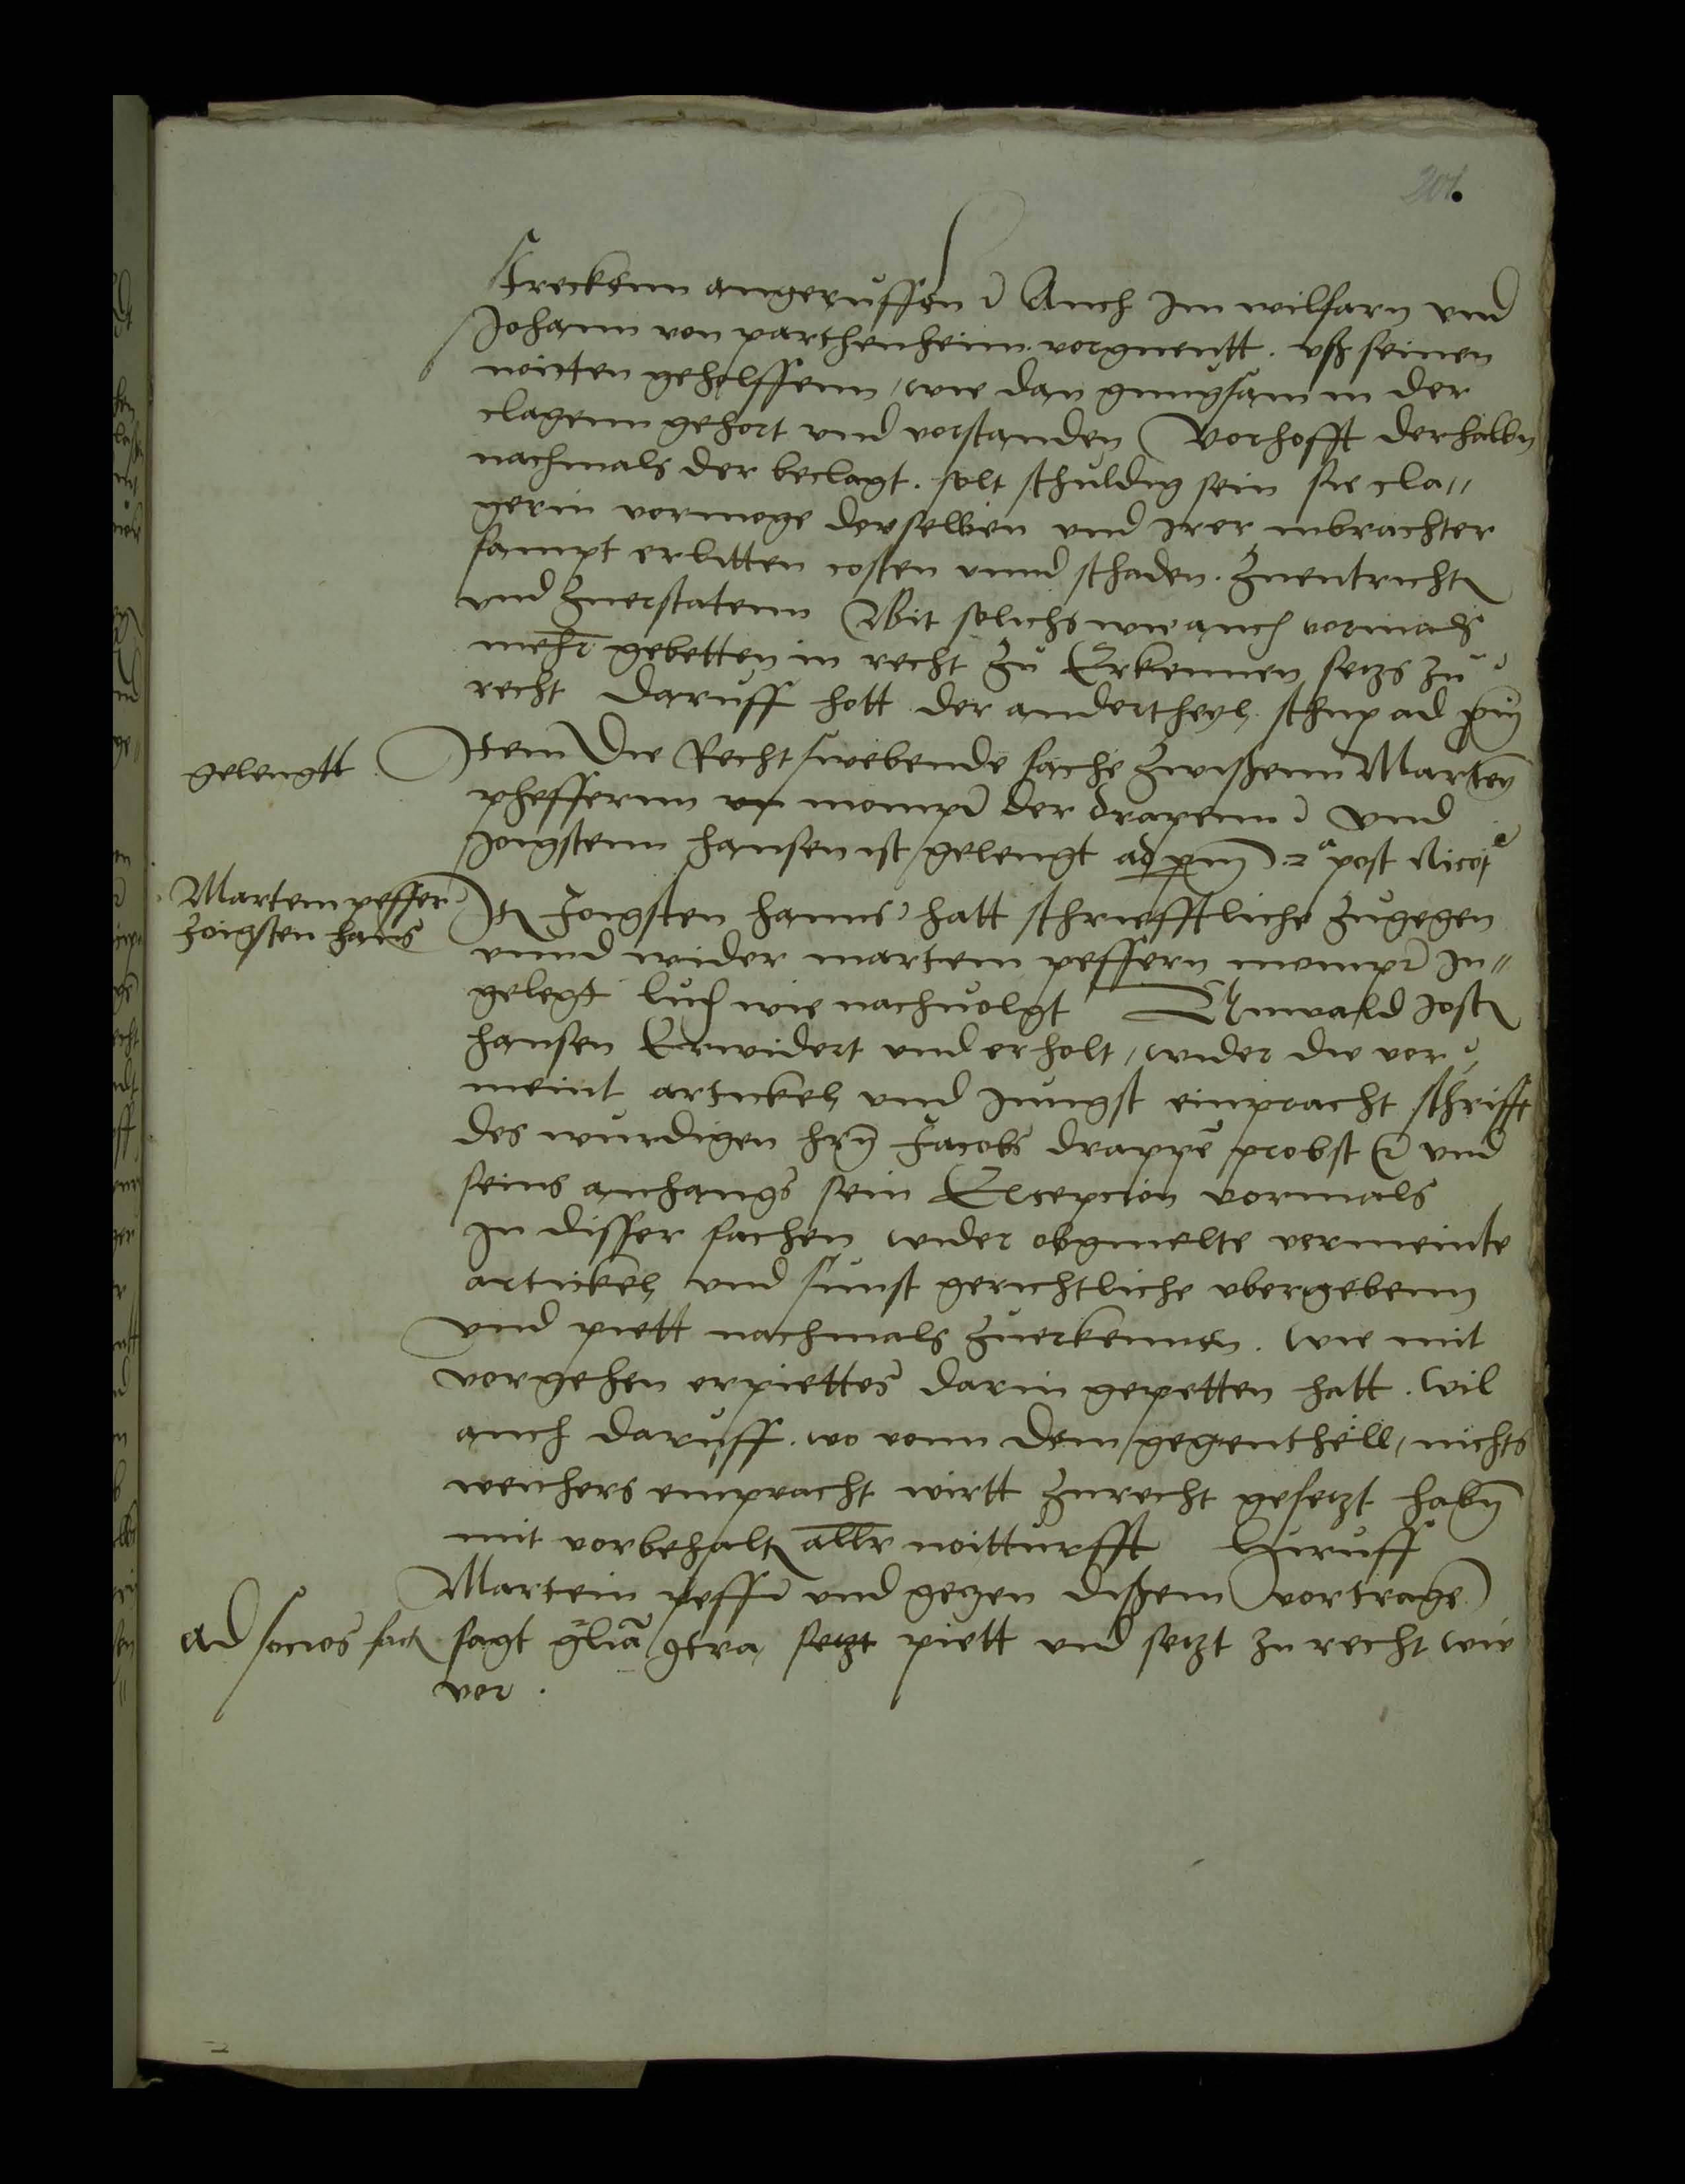 201.
streckenn angeruffen Auch Im wilfarn vnd
Johann von parthenheim vorgnentt. vß seinen
noitten geholffenn, wie dan gnugsam in der
clagenn gehort vnd vorstanden Vorhofft derhalbn
nachmals der beclagt. solt schuldig sein sie cla„
gerin vormoge derselben vnd Irer inbrachter
sampt erlitten costen vnnd schaden. Zuentricht
vnd Zuerstatenn Bit solichs wie auch vormals
mehr gebetten in recht zu Erkennen setzs zu
recht daruff hott der andertheyl schup ad
gelengtt
Item Die Recht swebende sache Zwißenn Marten
pheffernn momp der drapenn vnd
Joigstenn hansen ist gelengt ad post
Martenn peffer
Joigsten hans
Joigsten hanns hatt schriefftliche zugegen
vnnd wider martenn peffern momp In„
gelegt lud wie nachuolgt Anwald Jost
hansen Erwidert vnd erholt, wider die vor
meint artickel vnd Jungst einpracht schrifft
des wurdigen hrn Jacobs drappe probst vnd
seins anhangs sein Excepcion vormals
In disser sachen wider obgmelte vermeinte
artickel vnd sunst gerichtliche vbergebenn
vnd piett nachmals Zuerkennen. wie mit
vorgehen erpiettes darin gepetten hatt. wil
auch daruff. wo vonn dem gegentheill, nichts
weithers einpracht wirtt Zurecht gesetzt habn
mit vorbehalt allr noitturfft Hiruff
Martein peffer vnd gegen dißem vortrage
ad socios
sagt gliā 9tra setzt piett vnd setzt zu recht wie
vor.